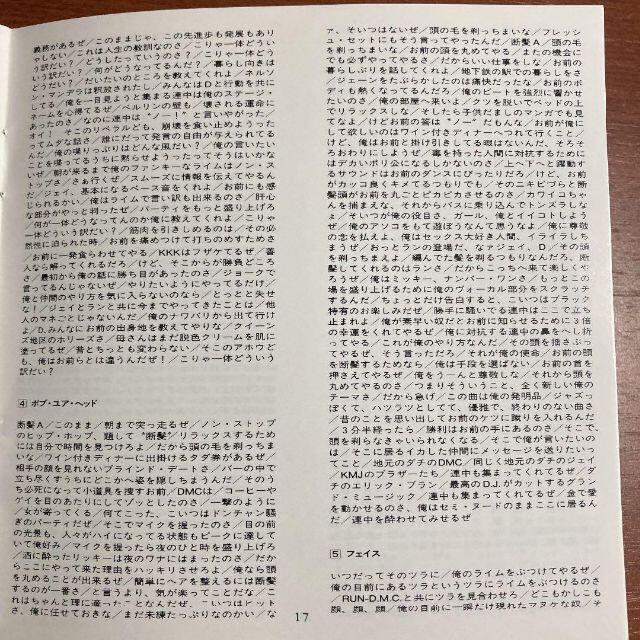 義務があるぜ／このままじゃ、この先進歩も発展もあり
ゃしない／これは人生の教訓なのさ／こりゃ一体どうい
う訳だい？／どうしたっていうのさ？／こりゃ一体どう
いう訳だい？／何がどうなってるんだ？／暮らし向きは
どうだい？／だいたいのところを教えてくれよ／ネルソ
ン・マンデラは釈放されたし／みんなはDと行動を共に
してる／俺を一目見ようと集まる連中は俺のステージ・
ネームを心得てるぜ／ベルリンの壁も／壊される運命に
あったのさ／なのに連中は“ノー！”と言いやがった／
オイ！　そこのリベラルども、崩壊を食い止めようった
ってムダな話さ／誰にだって発言の自由が与えられてる
んだ／俺の喋りっぷりはどんな風だい？／俺の言いたい
ことを喋ってるうちに黙らせようったってそうはいかな
いぜ／朝が来るまで俺のファンキーなライムはノン・ス
トップさ／さぁ行くぜ／スムーズに情報を伝えてやるん
だ／ジェイ、基本になるベース音をくれよ／お前にも感
じられるかい／俺はライムで言い訳も出来るのさ／肝心
な部分がやっと判ったぜ／パーティをもっと盛り上げろ
／何が一体どうなってんのか俺に教えてくれよ／こりゃ
一体どういう訳だい？／筋肉を引きしめるのは／その必
然性に迫られた時／お前を痛めつけて打ちのめすためさ
／お前に一発食らわせてやる／KKKはフザケてるぜ／善
人なら解ってくれるだろ／けど、そこからが勝負どころ
さ／最初から俺の話に勝ち目があったのさ／ジョークで
言ってるんじゃないぜ／やりたいようにやってるだけ／
俺と仲間のやり方を気に入らないのなら／とっとと失せ
な！／ジェイとランと共に今までやってきたことは／他
人のマネごとじゃないんだ／俺のナワバリから出て行け
よ／D、みんなにお前の出身地を教えてやりな／クイーン
ズ地区のホリーズさ／母さんはまだ脱色クリームを肌に
塗ってるぜ／昔とちっとも変わらない／そこのアホウど
も、俺はお前らとは違うんだぜ！／こりゃ一体どういう
訳だい？
4 ポプ・ユア・ヘッド
断髪A／このまま／朝まで突っ走るぜ／ノン・ストップ
のヒップ・ホップ、題して“断髪”／リラックスするため
には自分で時間を見つけろよ／だから頭の毛を剃っちま
いな／ワイン付きディナーに出掛けるタダ券があるぜ／
相手の顔を見れないブラインド・デートさ／バーの中で
立ち尽くすうちにどこかへ姿を隠しちまうんだ／そのう
ち必死になって小道具を捜すお前／DMCは／コーヒーや
ゲイを目のあたりにしてゾッとしたのさ／一撃のように
／女が寄ってくる／何てこった、こいつはドンチャン騒
ぎのパーティだぜ／そこでマイクを握ったのさ／目の前
の光景も、人々がハイになってる状態もピークに達して
いて俺好み／マイクを握ったら夜のひと時を盛り上げろ
／酒に酔ったリッキーは夜のワナにはまったのさ／だか
らここにやって来た理由をハッキリさせろよ／俺なら頭
を丸めることが出来るぜ／簡単にヘアを整えるには断髪
するのが一番さ／と言うより、気が楽ってことだな／こ
れはちゃんと理に適ったことなんだぜ、一いつはヒット
さ、俺に任せておきな／まだ未練たっぷりなのかい／な
ァ、そいつはないぜ／頭の毛を剃っちまいな／フレッシ
ュ・セットにもそう言ってやったんだ／断髪A／頭の毛
を剃っちまいな／お前の頭を丸めてやる／またの機会に
でも必ずやってやるさ／だからいい仕事をしな／お前の
暮らしぶりを話してくれよ／地下鉄の駅での暮らしをさ
／ジェーンをたぶらかしたのは痛快だったな／お前のボ
ディも熱くなってるんだろ／俺のビートを強烈に響かせ
たいのさ／俺の部屋へ来いよ／クツを脱いでベッドの上
でリラックスしな／そしたら子供だましのマンガでも見
てなよ／けどお前の答は“ノー”だもんな／お前が俺に
して欲しいのはワイン付きディナーへつれて行くこと／
けど、俺はお前と掛け引きしてる暇はないんだ、そろそ
ろおわりにしようぜ／毒を持った人間に対抗するために
はデカいボリ公になるしかないのさ／上へ下へと躍動す
るサウンドはお前のダンスにぴったりだろ／けど、お前
がカッコ良くキメてるつもりでも／そのニキビづらと断
髪頭がお前を丸ごとピカピカさせるのさ／カワイコちゃ
んを捕まえな、それからバスに乗り込んでトンズラしな
よ／そいつが俺の役目さ、ガール、俺とイイコトしよう
ぜ／俺のアソコをもて遊ぼうなんて思うなよ／俺に尊敬
の念を払えよ、俺はセックス大好き人間、イライラしち
まうぜ／おっとランの登場だ、なァジェイ、D／その頭
を剃っちまえよ／編んでた髪を剃るつもりなんだろ、断
髪してくれるのはランさ／だからこっちへ来て楽しくや
ろうぜ／俺はミッキー、ナンバー・ワンさ／もっとこの
場を盛り上げるために俺のヴォーカル部分をスクラッチ
するんだ／ちょっとだけ告白すると、こいつはブラック
特有のお楽しみだぜ／勝手に騒いでる連中はここで立ち
止まれよ／俺が素早い奴だとお前に知らせるために3倍
の幸運をくれてやるぜ／俺に対抗する連中の鼻をへし折
ってやる／これが俺のやり方なんだ／その頭を揺さぶっ
てやるぜ、そう言っただろ／それが俺の使命／お前の頭
を断髪するためなら／俺は手段を選ばない／お前の首を
押さえてやるぜ／俺をうーんと尊敬しな／それから頭を
丸めてやるのさ／つまりそういうこと、全く新しい俺の
テーマさ／だから急げ／この曲は俺の発明品／ジャズっ
ぽくて、ハツラツとしてて、優雅で、終わりのない曲さ
／昔のことを思い出してお前のケツに蹴りを入れるんだ
／3分半経ったら／勝利はお前の手に有るのさ／そこで、
頭を剃らなきゃいられなくなる／そこで俺が言いたいの
は／そこに居るイカした仲間にメッセージを送りたいっ
てこと／地元のダチのDMC／同じく地元のダチのジェイ
／KMJのブラザーたち、連中も集まってくれてるぜ／ダ
チのエリック・ブラン／最高のD.J.がカットするグラン
ド・ミュージック／連中も集まってくれてるぜ／金で愛
を動かせるのさ、俺はセミ・ヌードのままここに居るん
だ／連中を酔わせてみせるぜ
5 フェイス
いつだってそのツラに／俺のライムをぶつけてやるぜ／
俺の目前にあるツラというツラにライムをぶつけるのさ
／RUN-D.M.C.と共にツラを見合わせろ／どこもかしこも
顔、顔、顔／俺の目前に一瞬だけ現れたマヌケな奴／そ
17